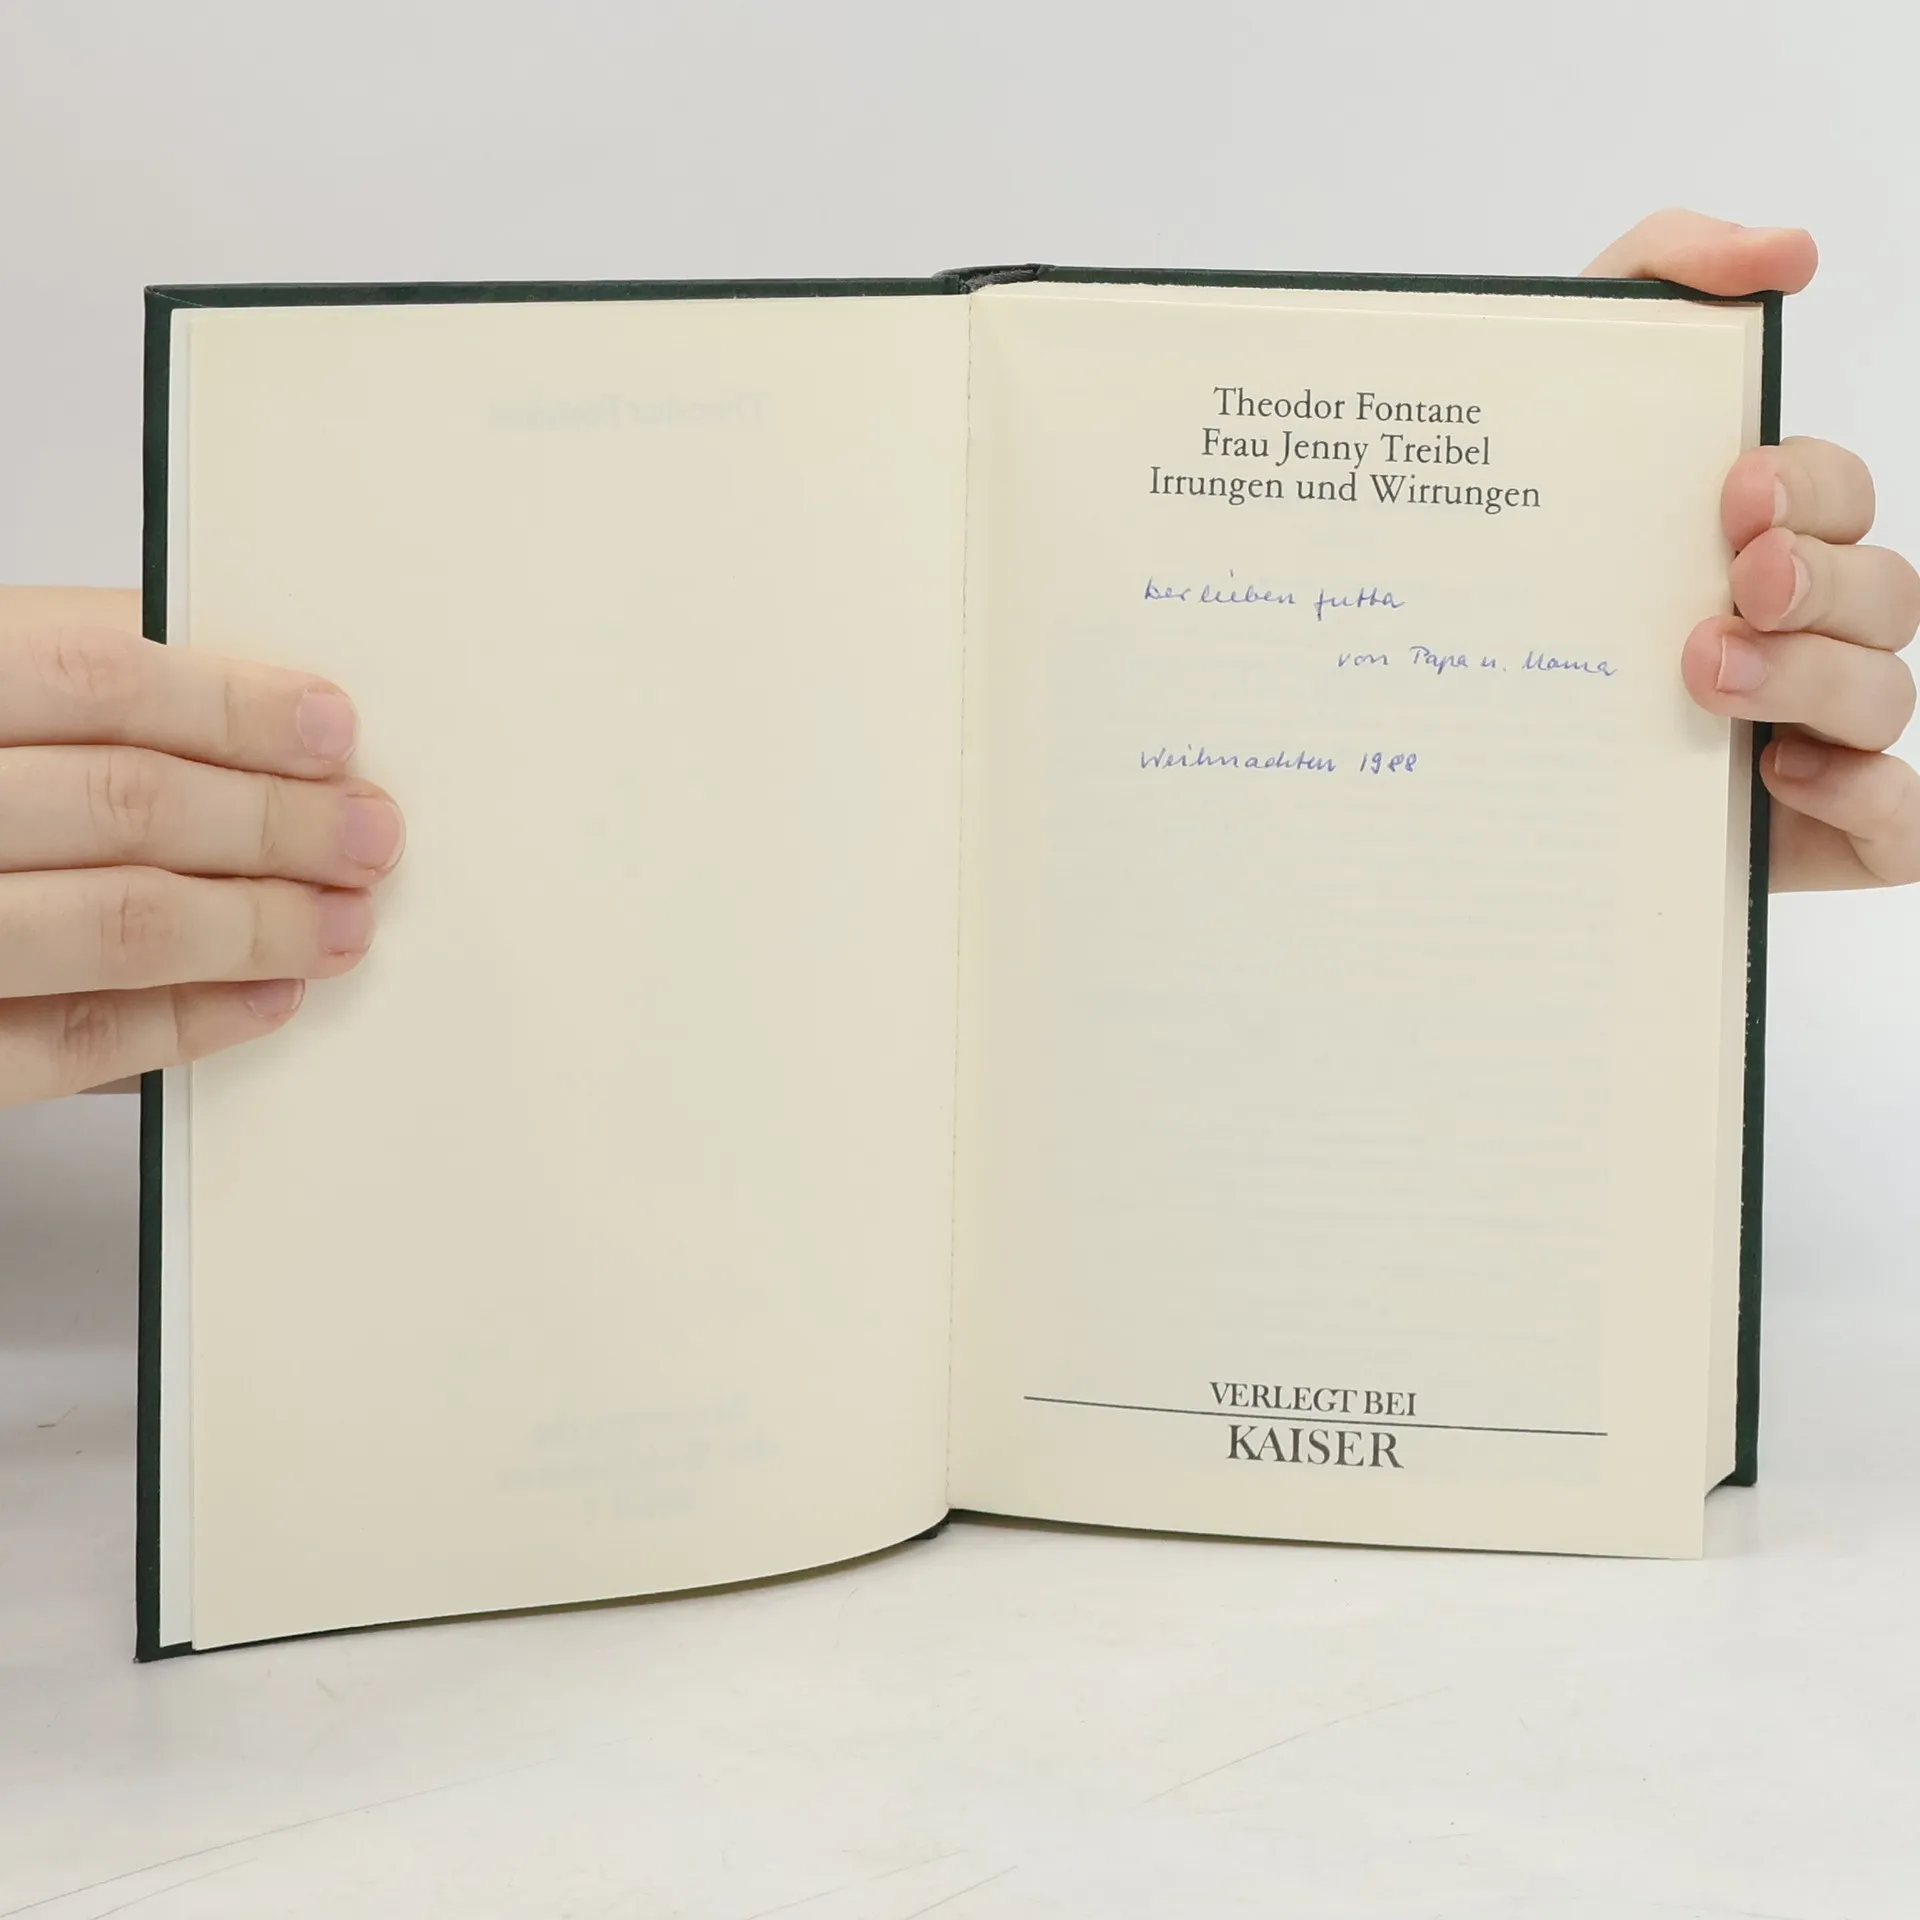 Theodor Fontane
Frau Jenny Treibel
Irrungen und Wirrungen
Der lieben Jutta
von Papa u. Mama
Weihnachten 1988
VERLEGT BEI
KAISER